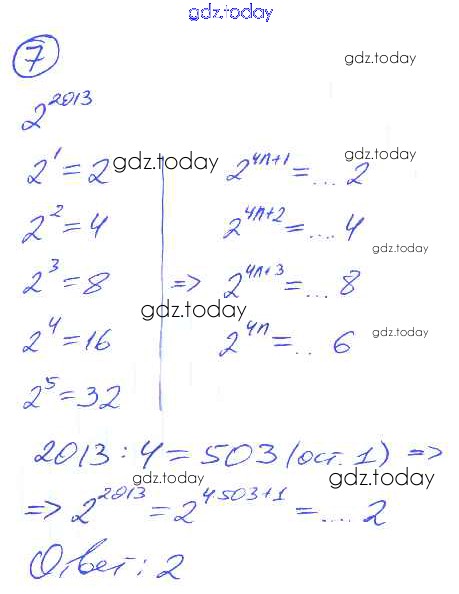 gdz.today
7
gdz.today
2^2013
2^1 = 2 gdz.today 2^4n+1 = ... 2 gdz.today
2^2 = 4 2^4n+2 = .... 4
gdz.today
2^3 = 8 => 2^4n+3 = ... 8
gdz.today
2^4 = 16 2^4n = .. 6 gdz.today
2^5 = 32
2013 : 4 = 503 (ост. 1) =>
gdz.today gdz.today
=> 2^2013 = 2^4·503+1 = .... 2
Ответ: 2